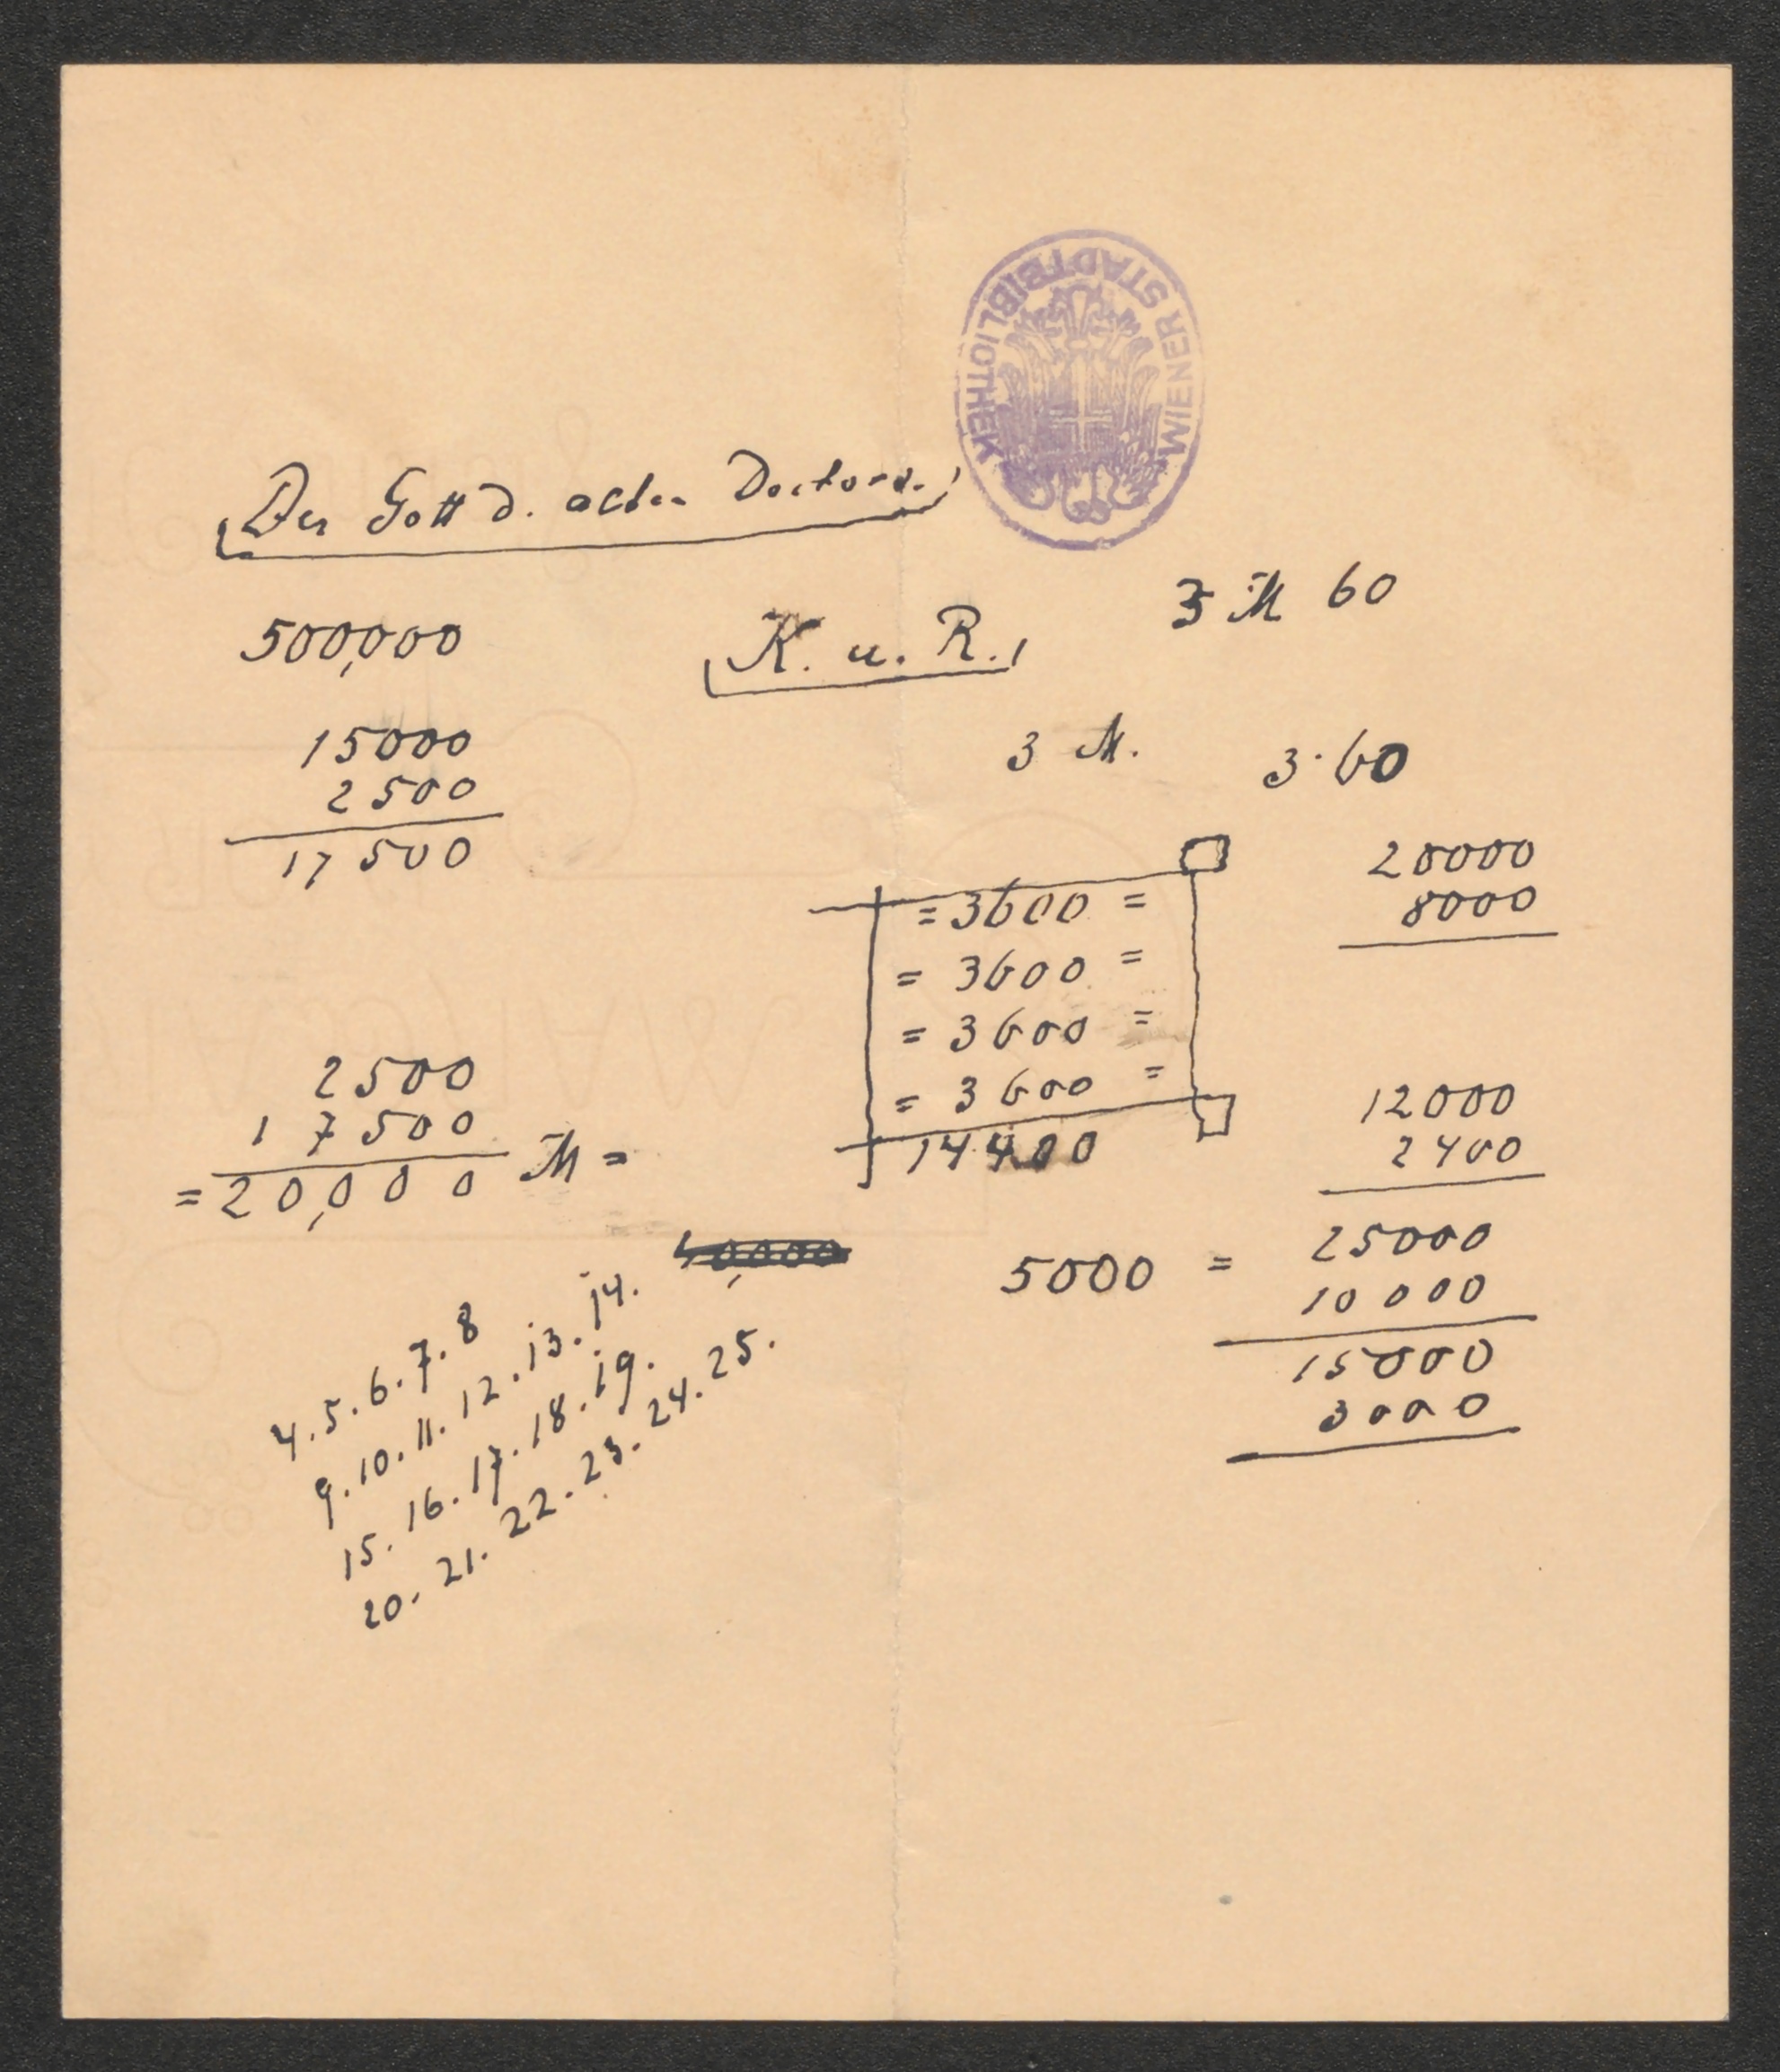 WIENER STADTBIBLIOTHEK
Der Gott d. alten Doctors.
500,000
K. u. R.
3 M 60
15000
2500
17500
3 M.
3·60
= 3600 =
= 3600 =
= 3600 =
= 3600 =
14400
20000
8000
2500
17500
= 20,000 M =
12000
2400
5000 =
25000
10000
15000
3000
4. 5. 6. 7. 8
9. 10. 11. 12. 13. 14.
15. 16. 17. 18. 19.
20. 21. 22. 23. 24. 25.